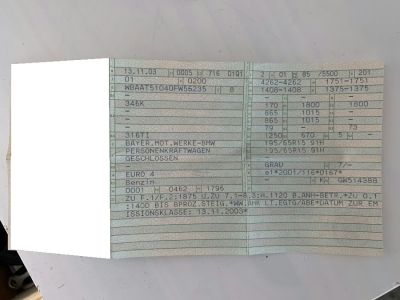 13.11.03 0005 716 0101
01 0200
WBAAT51040FW56235 8
—
346K
—
—
—
316TI
BAYER.MOT.WERKE-BMW
PERSONENKRAFTWAGEN
GESCHLOSSEN
—
EURO 4
Benzin
0001 0462 1796
2 01 85 /5500 201
4262-4262 1751-1751
1408-1408 1375-1375
— —
170 1800 1800
865 1015 —
865 1015 —
79 — 73
1250 670 5 —
195/65R15 91H
195/65R15 91H
—
GRAU 7/-
e1*2001/116*0167*
KW GW514388
ZU F.1/F.2:1875 U.ZU 7.1-8.3:H.1120 B.ANH-BETR.*ZU O.1
:1400 BIS 8PROZ.STEIG.*WW.AHK LT.EGTG/ABE*DATUM ZUR EM
ISSIONSKLASSE: 13.11.2003*